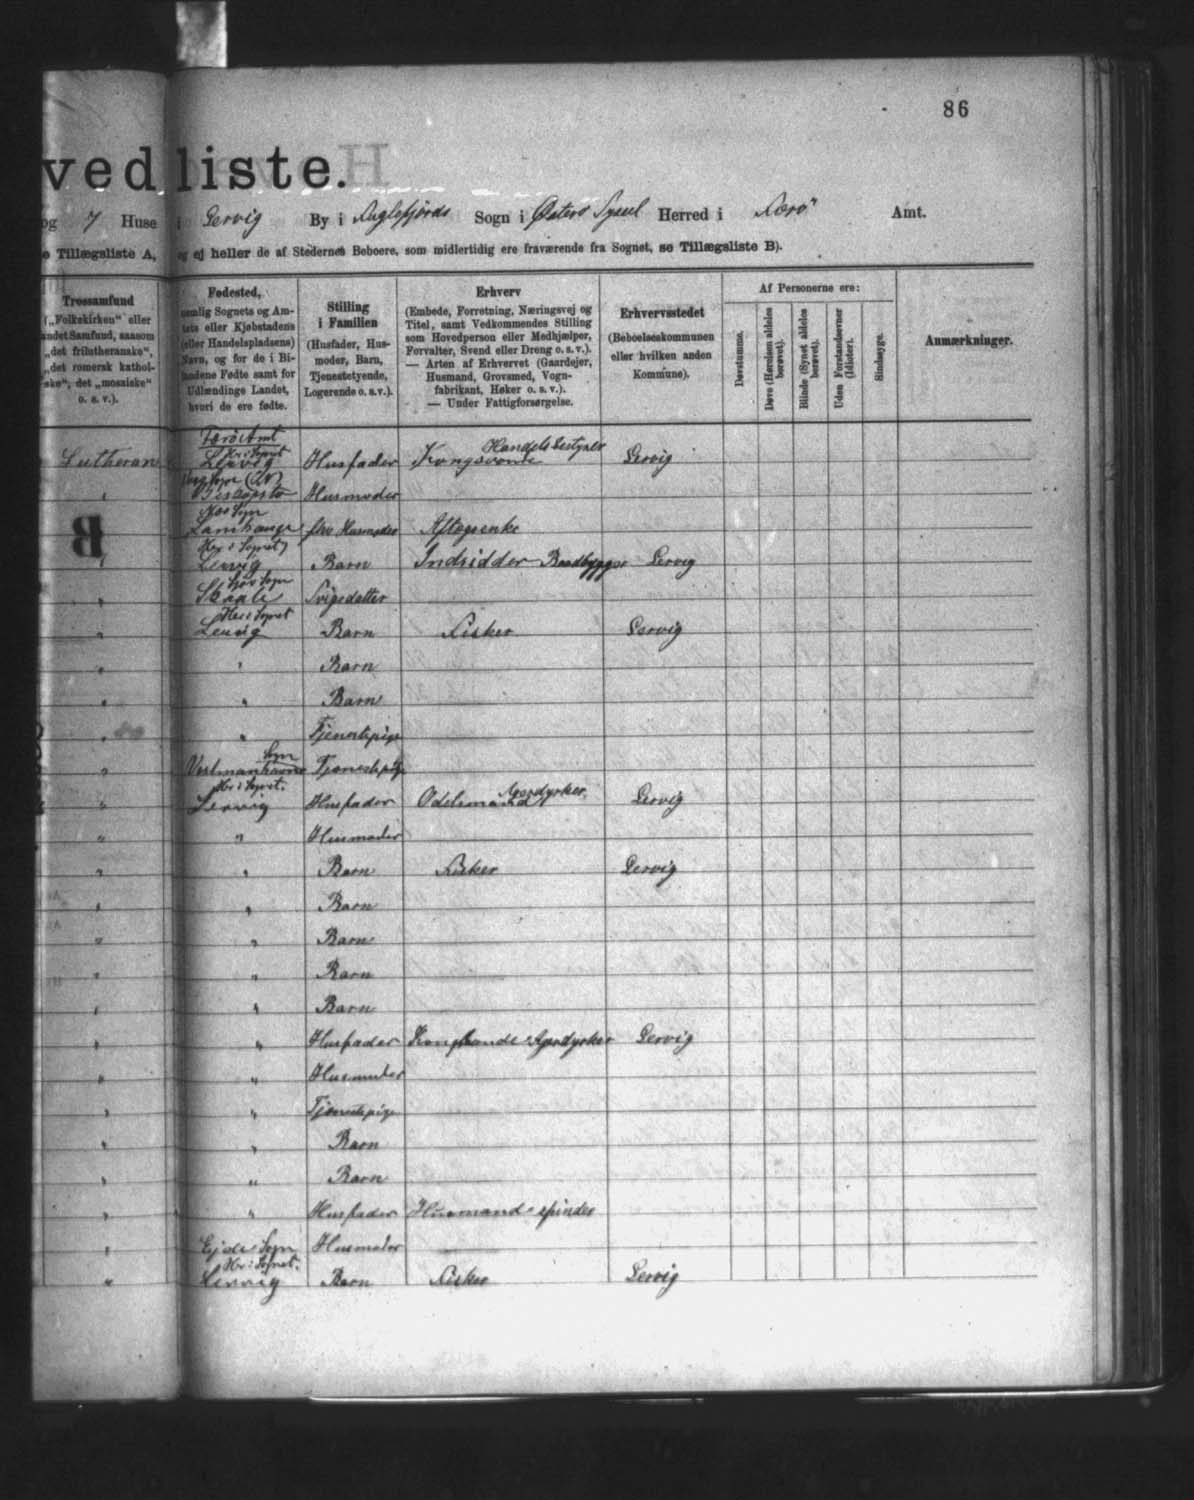 86
vedliste.
og 7 Huse i Lervig By i Fuglefjords Sogn i Østerø Syssel Herred i Færø Amt.
e Tillægsliste A, og ej heller de af Stedernes Beboere, som midlertidig ere fraværende fra Sognet, se Tillægsliste B).
Trossamfund
(„Folkekirken“ eller
andet Samfund, saasom
„det frilutheranske“,
„det romersk kathol-
ske“, det „mosaiske“
o. s. v.).
Fødested,
nemlig Sognets og Am-
tets eller Kjøbstadens
(eller Handelspladsens)
Navn, og for de i Bi-
landene Fødte samt for
Udlændinge Landet,
hvori de ere fødte.
Stilling
i Familien
(Husfader, Hus-
moder, Barn,
Tjenestetyende,
Logerende o. s. v.).
Erhverv
(Embede, Forretning, Næringsvej og
Titel, samt Vedkommendes Stilling
som Hovedperson eller Medhjælper,
Forvalter, Svend eller Dreng o. s. v.).
— Arten af Erhvervet (Gaardejer,
Husmand, Grovsmed, Vogn-
fabrikant, Høker o. s. v.).
— Under Fattigforsørgelse.
Erhvervsstedet
(Beboelseskommunen
eller hvilken anden
Kommune).
Af Personerne ere:
Døvstumme.
Døve (Hørelsen aldeles berøvet).
Blinde (Synet aldeles berøvet).
Uden Forstandsevner (Idioter).
Sindssyge.
Anmærkninger.
Færø Amt
Her i Sognet Handelsbestyrer
Lutheran Lervig Husfader Kongsbonde Lervig
" Husmoder
Sogn
" Lamhauge Husmoder Aftægtsenke
Her i Sognet
" Lervig Barn Indsidder Baadbygger Lervig
Sogn
" Skaale Svigedatter
Her i Sognet
" Lervig Barn Fisker Lervig
" " Barn
" " Barn
" " Tjenestepige
Sogn
" Vestmanhavns Tjenestepige
Her i Sognet. Agerdyrker.
" Lervig Husfader Odelsmand Lervig
" " Husmoder
" " Barn Fisker Lervig
" " Barn
" " Barn
" " Barn
" " Barn
" " Husfader Kongsbonde Agerdyrker Lervig
" " Husmoder
" " Tjenestepige
" " Barn
" " Barn
" " Husfader Husmand spinder
" Ejde Sogn Husmoder
Her i Sognet.
" Lervig Barn Fisker Lervig
B